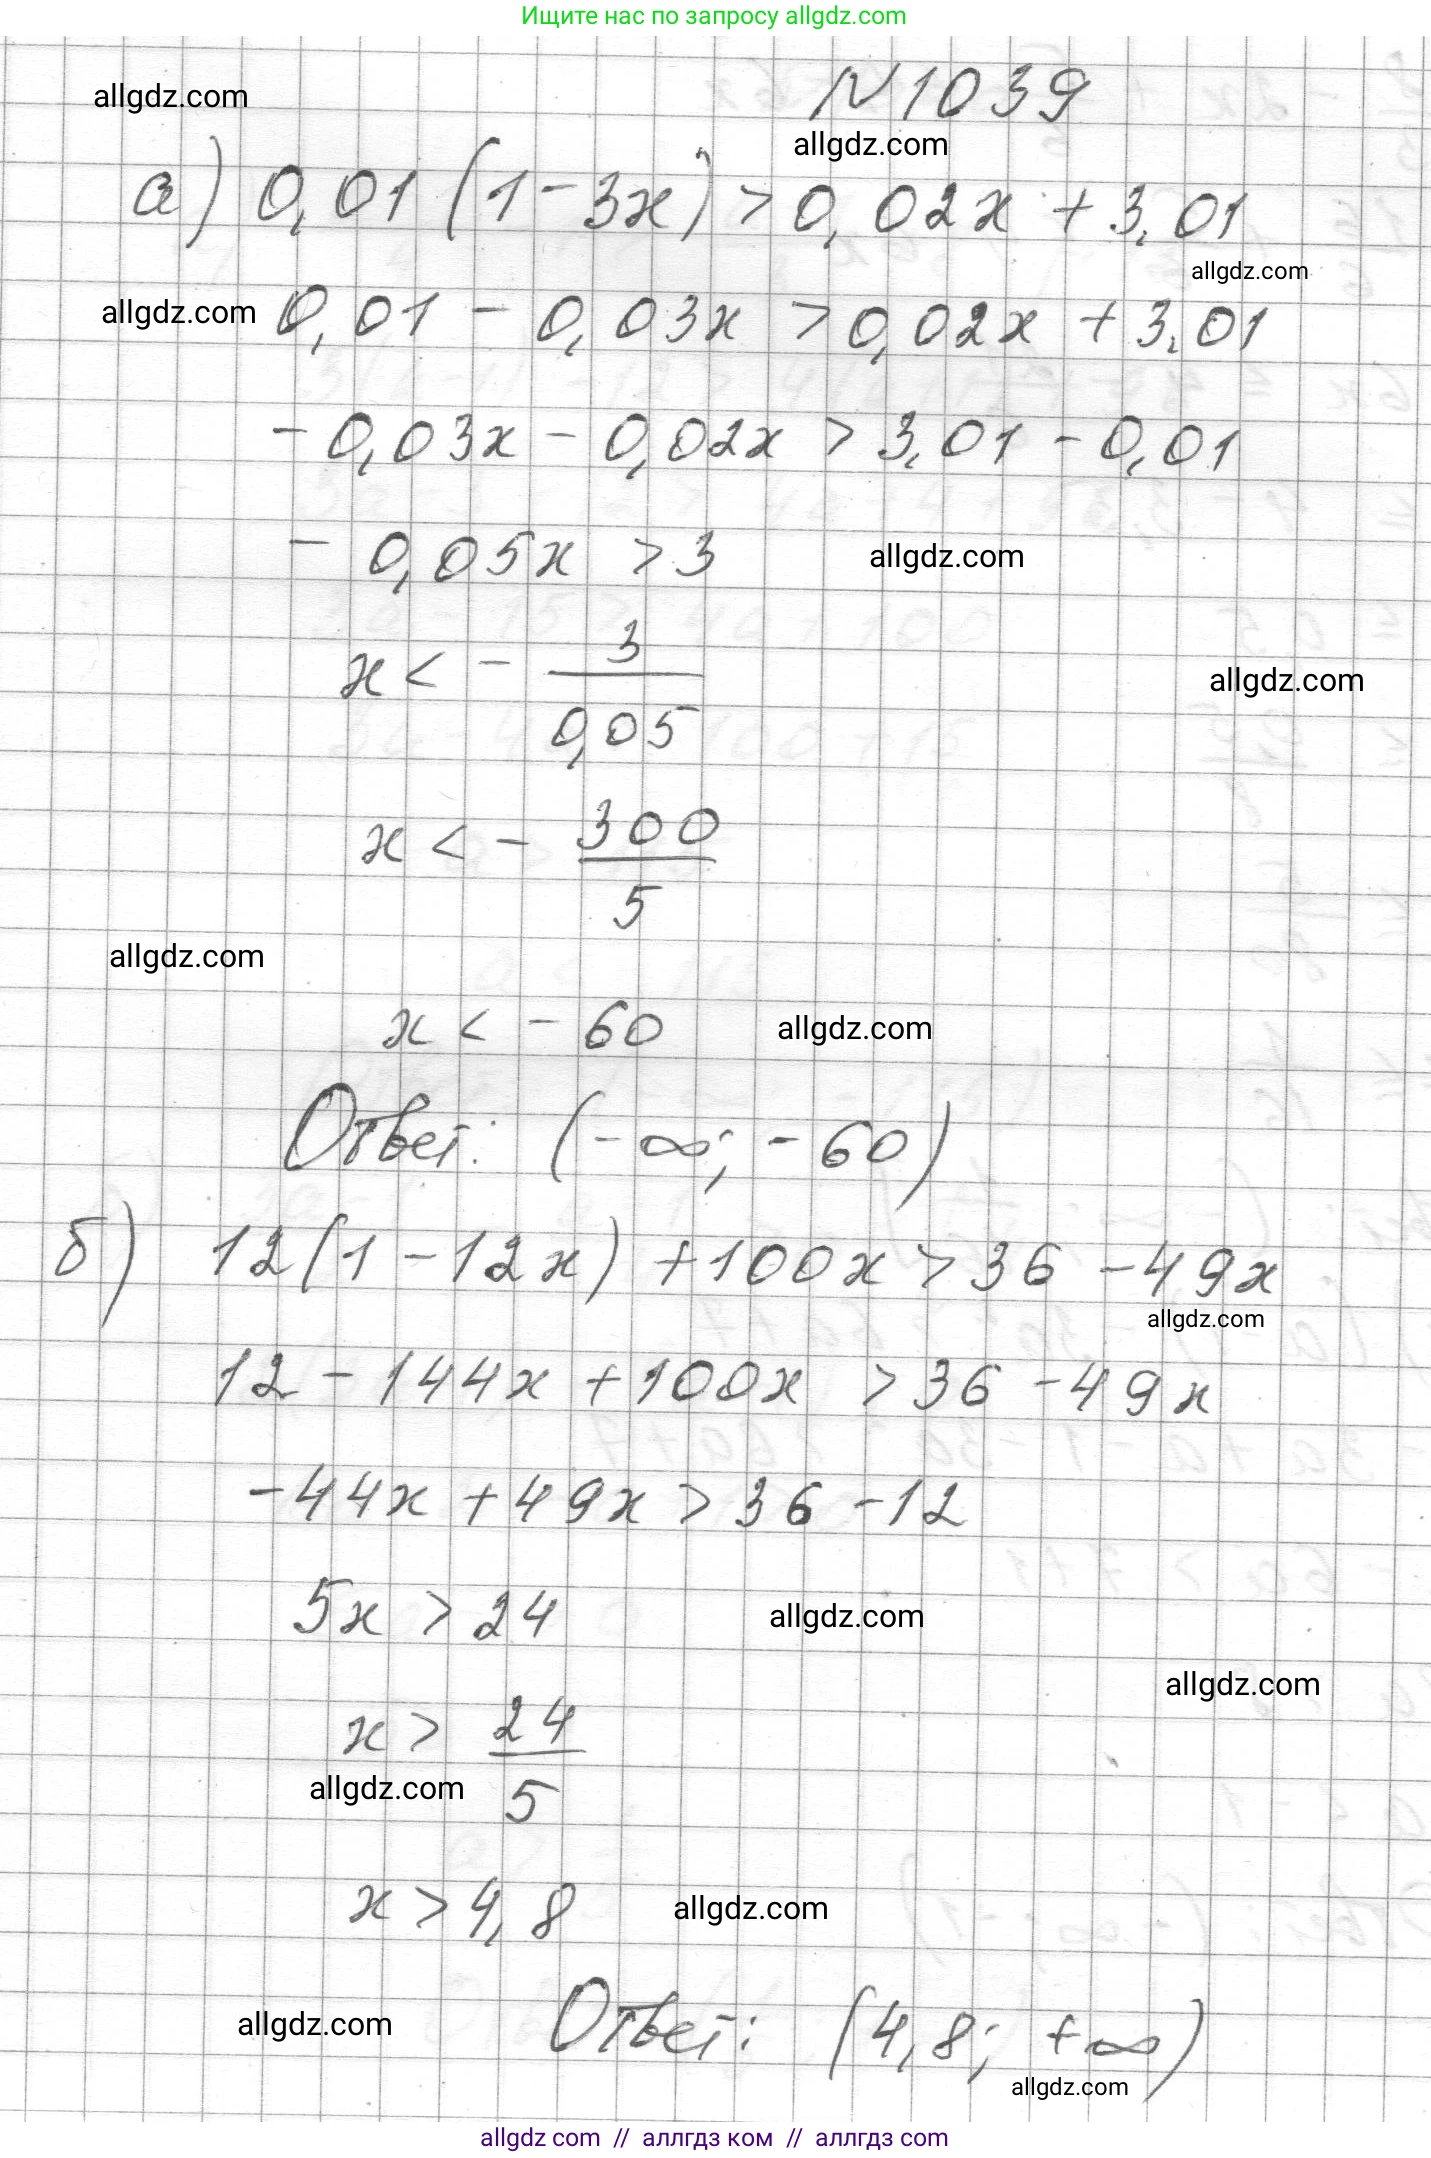 Ищите нас по запросу allgdz.com
N 1039
allgdz.com
allgdz.com
а) 0,01 (1 - 3x) > 0,02x + 3,01
allgdz.com
allgdz.com
0,01 - 0,03x > 0,02x + 3,01
- 0,03x - 0,02x > 3,01 - 0,01
- 0,05x > 3
allgdz.com
x < - 3/0,05
allgdz.com
x < - 300/5
allgdz.com
x < - 60
allgdz.com
Ответ: (-∞; -60)
б) 12(1 - 12x) + 100x > 36 - 49x
allgdz.com
12 - 144x + 100x > 36 - 49x
-44x + 49x > 36 - 12
5x > 24
allgdz.com
allgdz.com
x > 24/5
allgdz.com
x > 4,8
allgdz.com
allgdz.com
Ответ: (4,8; +∞)
allgdz.com
allgdz com // аллгдз ком // аллгдз com